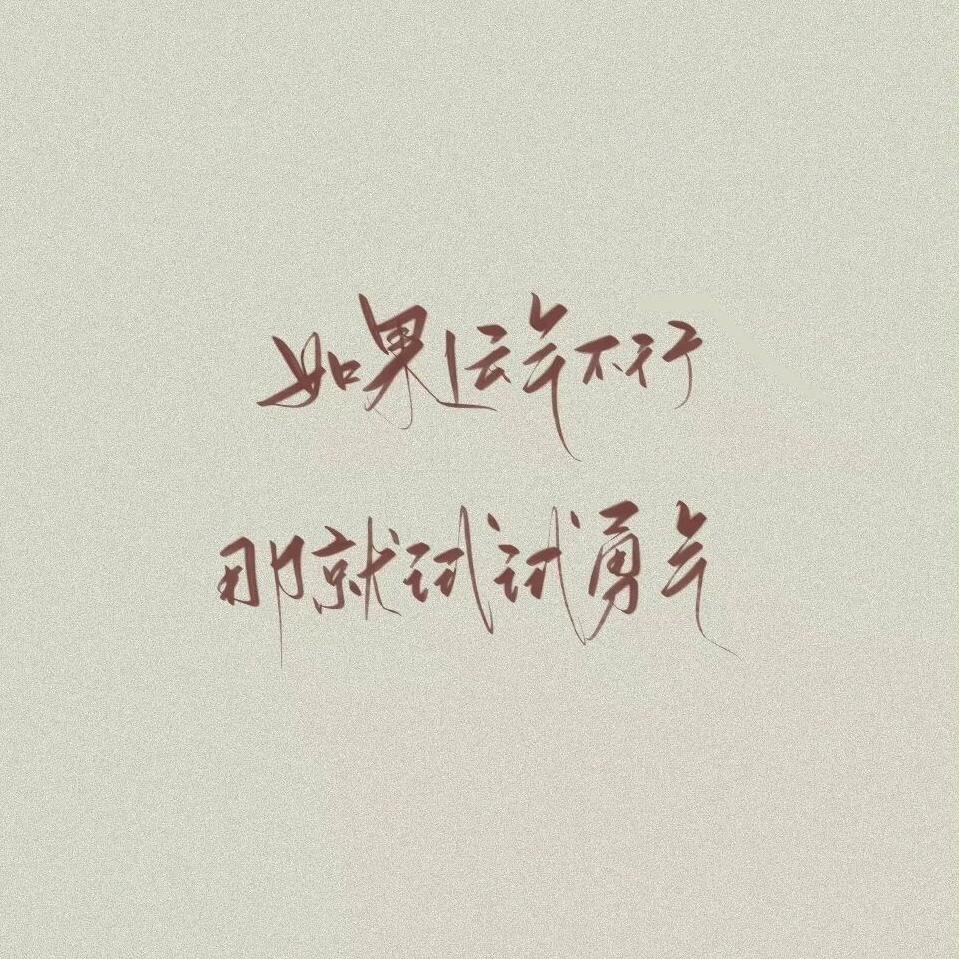 如果运气不行
那就试试勇气